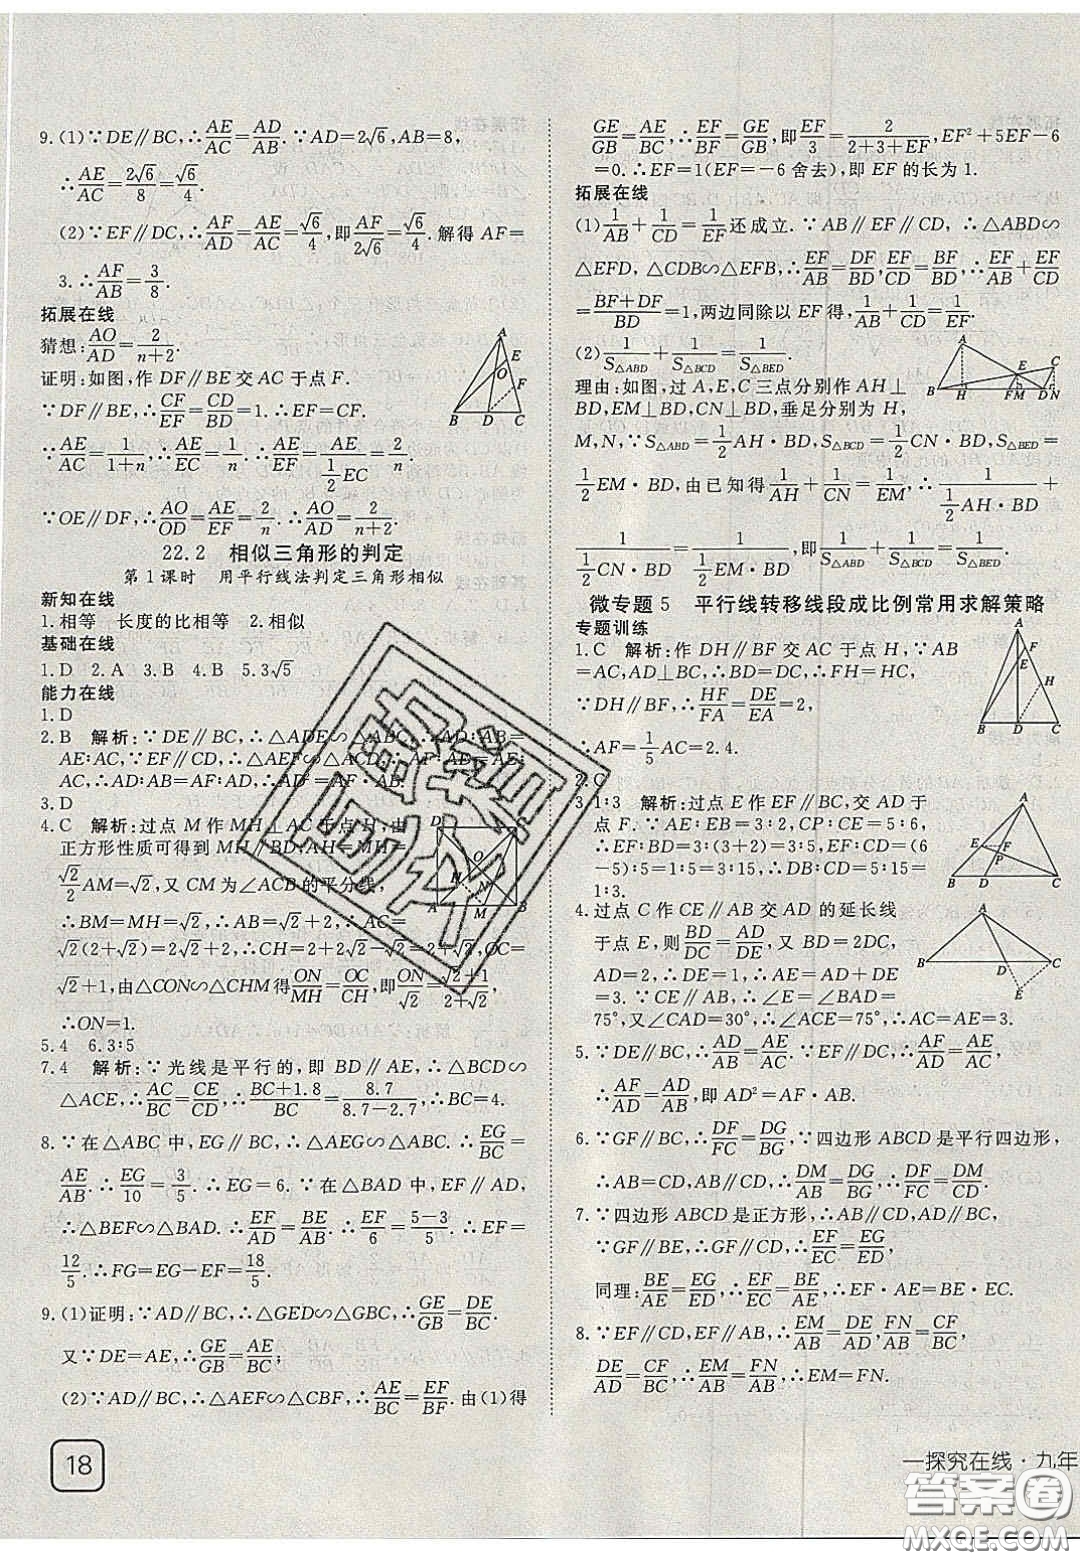 9.(1)∵DE∥BC,∴AE/AC=AD/AB.∵AD=2√6,AB=8,
∴AE/AC=2√6/8=√6/4.
(2)∵EF∥DC,∴AF/AD=AE/AC=√6/4,即AF/2√6=√6/4.解得AF=
3.∴AF/AB=3/8.
拓展在线
猜想:AO/AD=2/(n+2).
证明:如图,作DF∥BE交AC于点F.
∵DF∥BE,∴CF/EF=CD/BD=1.∴EF=CF.
∵AE/AC=1/(1+n),∴AE/EC=1/n.∴AE/EF=AE/(1/2 EC)=2/n.
∵OE∥DF,∴AO/OD=AE/EF=2/n.∴AO/AD=2/(n+2).
22.2 相似三角形的判定
第1课时 用平行线法判定三角形相似
新知在线
1.相等 长度的比相等 2.相似
基础在线
1.D 2.A 3.B 4.B 5.3√5
能力在线
1.D
2.B 解析:∵DE∥BC,∴△ADE∽△ABC.∴AD:AB=
AE:AC,∵EF∥CD,∴△AEF∽△ACD.∴AE:AC=
AF:AD.∴AD:AB=AF:AD.∴AD²=AF·AB.
3.D
4.C 解析:过点M作MH⊥AC于点H,由
正方形性质可得到MH∥BD.AH=MH=
√2/2 AM=√2,又CM为∠ACB的平分线,
∴BM=MH=√2.∴AB=√2+2,∴AC=
√2(2+√2)=2√2+2.∴CH=2+√2,OC=
√2+1,由△CON∽△CHM得ON/MH=OC/CH,即ON/√2=(√2+1)/(2+√2),
∴ON=1.
5.4 6.3:5
7.4 解析:∵光线是平行的,即BD∥AE,∴△BCD∽
△ACE,∴AC/BC=CE/CD,∴(BC+1.8)/BC=8.7/(8.7-2.7),∴BC=4.
8.∵在△ABC中,EG∥BC,∴△AEG∽△ABC.∴EG/BC=
AE/AB.∴EG/10=3/5.∴EG=6.∵在△BAD中,EF∥AD,
∴△BEF∽△BAD.∴EF/AD=BE/AB.∴EF/6=(5-3)/5.∴EF=
12/5.∴FG=EG-EF=18/5.
9.(1)证明:∵AD∥BC,∴△GED∽△GBC,∴GE/GB=DE/BC.
又∵DE=AE,∴GE/GB=AE/BC;
(2)∵AD∥BC,∴△AEF∽△CBF,∴AE/BC=EF/BF.由(1)得
18
GE/GB=AE/BC,∴EF/BF=GE/GB,即EF/3=2/(2+3+EF),EF²+5EF-6
=0.∴EF=1(EF=-6舍去),即EF的长为1.
拓展在线
(1)1/AB+1/CD=1/EF还成立.∵AB∥EF∥CD,∴△ABD∽
△EFD,△CDB∽△EFB,∴EF/AB=DF/BD,EF/CD=BF/BD,∴EF/AB+EF/CD
=(BF+DF)/BD=1,两边同除以EF得,1/AB+1/CD=1/EF.
(2)1/S△ABD+1/S△BCD=1/S△BED.
理由:如图,过A,E,C三点分别作AH⊥
BD,EM⊥BD,CN⊥BD,垂足分别为H,
M,N,∵S△ABD=1/2 AH·BD,S△BCD=1/2 CN·BD,S△BED=
1/2 EM·BD,由已知得1/AH+1/CN=1/EM,∴1/(1/2 AH·BD)+
1/(1/2 CN·BD)=1/(1/2 EM·BD),即1/S△ABD+1/S△BCD=1/S△BED.
微专题5 平行线转移线段成比例常用求解策略
专题训练
1.C 解析:作DH∥BF交AC于点H,∵AB
=AC,AD⊥BC,∴BD=DC,∴FH=HC,
∵DH∥BF,∴HF/FA=DE/EA=2,
∴AF=1/5 AC=2.4.
2.C
3.1:3 解析:过点E作EF∥BC,交AD于
点F.∵AE:EB=3:2,CP:CE=5:6,
∴EF:BD=3:5,∴EF:CD=EP:CP=(6
-5):5=1:5=3:15,∴DB:CD=5:15=
1:3.
4.过点C作CE∥AB交AD的延长线
于点E,则BD/DC=AD/DE,又BD=2DC,
AD=2,∴DE=1.∵CE∥AB,
∴AE=3.又∵∠E=∠BAD=
75°,又∠CAD=30°,∴∠ACE=75°,∴AC=AE=3.
5.∵DE∥BC,∴AD/AB=AE/AC.∵EF∥CD,∴AF/AD=AE/AC.
∴AF/AD=AD/AB,即AD²=AF·AB.
6.∵GF∥BC,∴DF/FC=DG/BG,∵四边形ABCD是平行四边形,
∴AB=CD,AB∥CD,∴DM/AB=DM/DC=DG/BG,∴DF/FC=DM/CD.
7.∵四边形ABCD是正方形,∴AB∥CD,AD∥BC,
∵GF∥BE,∴GF∥AD,∴EF/EC=EG/ED,
同理:BE/AE=EG/ED,∴EF/EC=BE/AE,∴EF·AE=BE·EC.
8.∵EF∥CD,EF∥AB,∴EM/AB=DE/DA,FN/AB=CF/BC,
DE/AD=CF/BC,∴EM/AB=FN/AB,∴EM=FN.
一探究在线·九年
答案圈
MXQE.COM